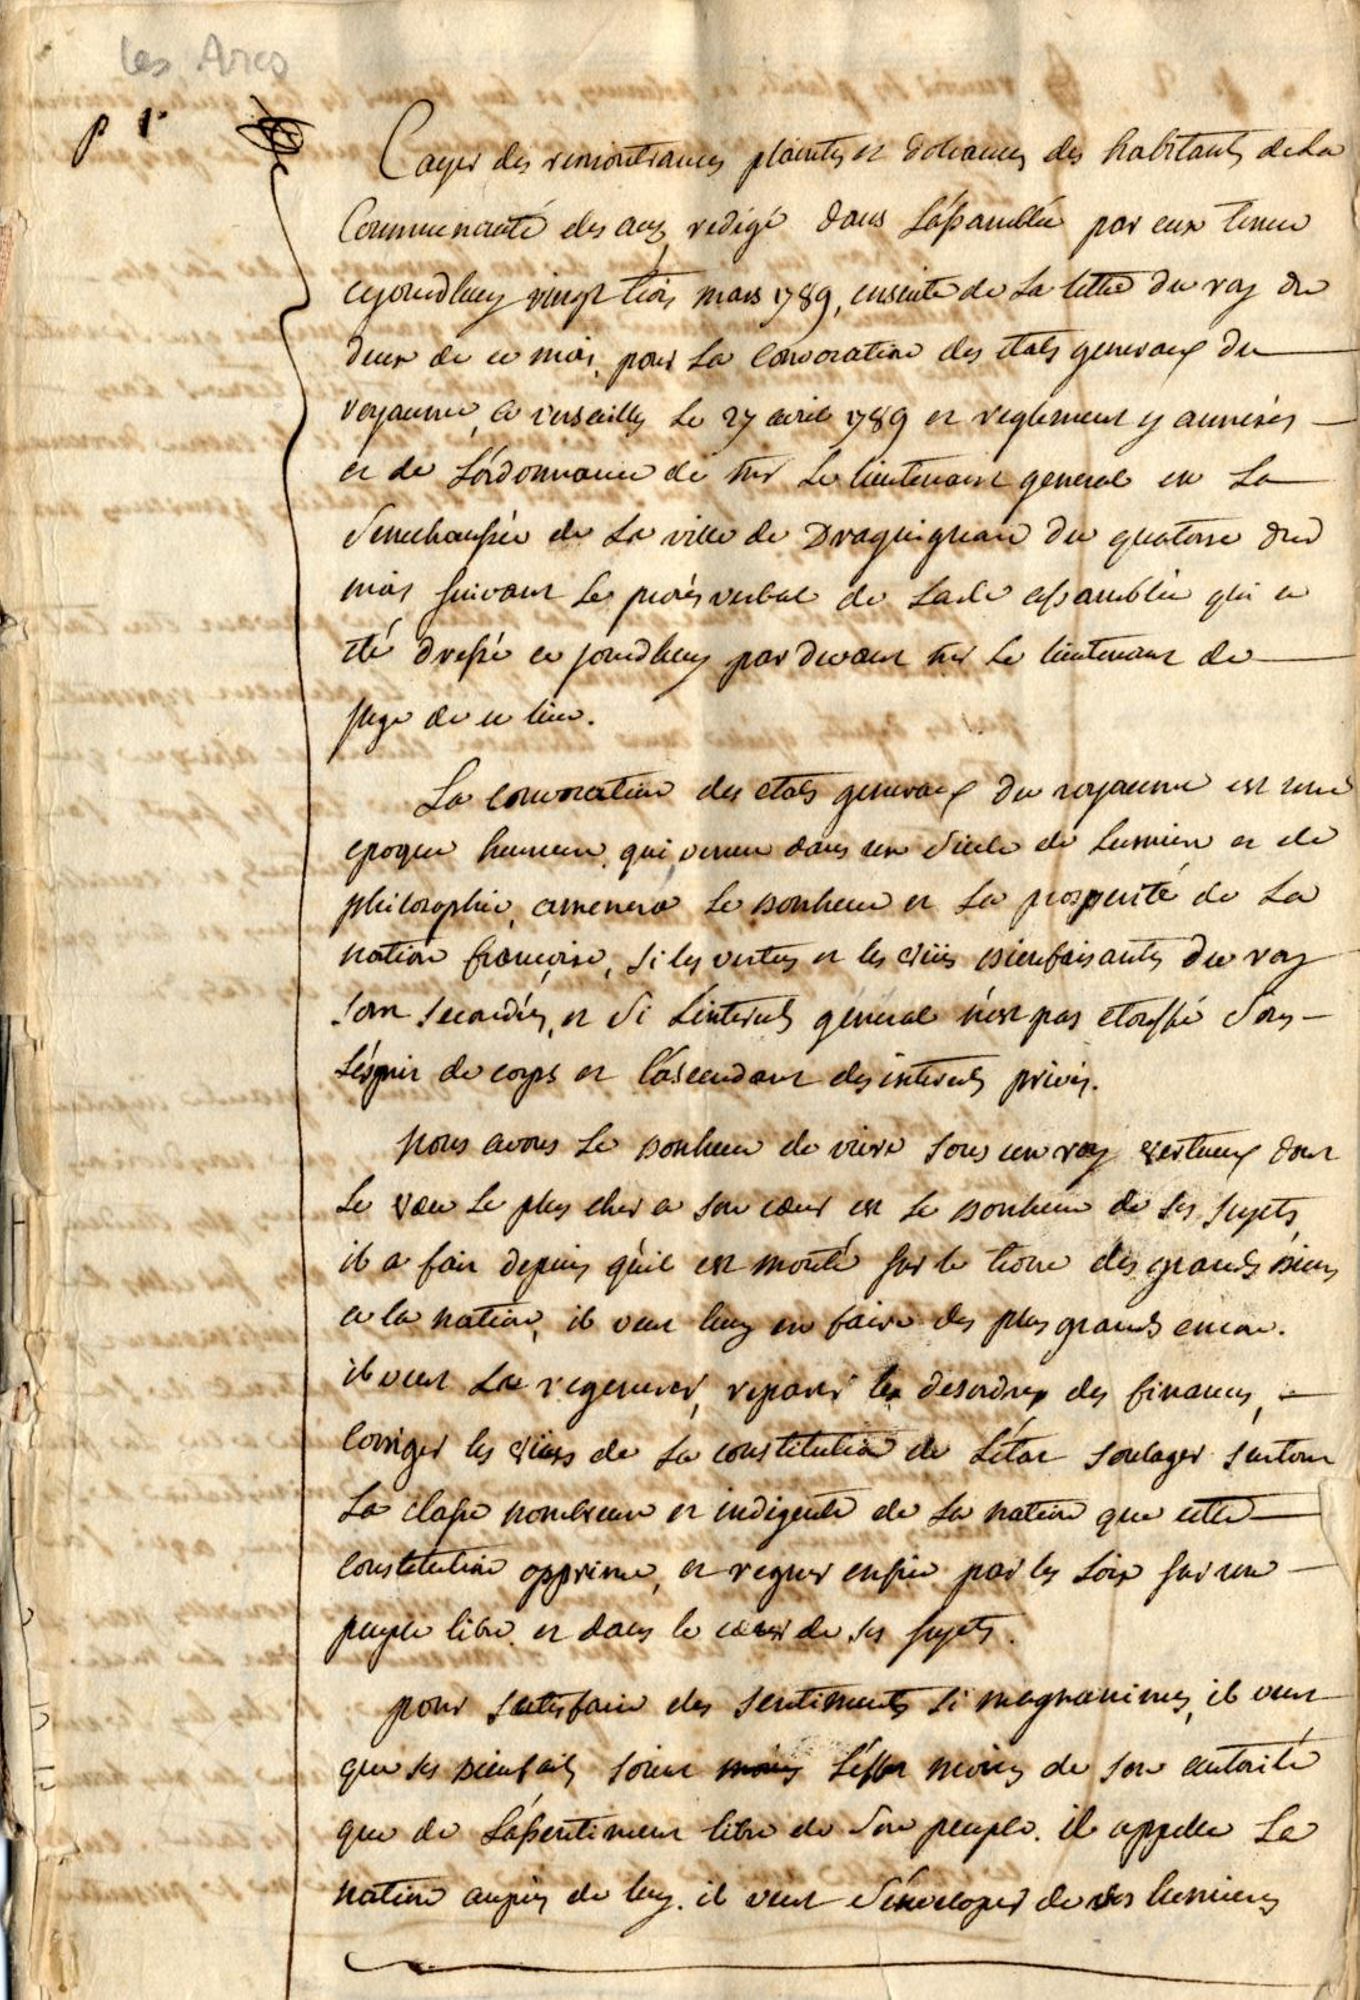 les Arcs
p 1r
Cayer des remontrances plaintes et doleances des habitants de La
Communauté des arcs redigé dans L'assamblée par eux tenue
cejourdhuy vingt trois mars 1789, ensuite de La lettre du roy du
deux de ce mois, pour La Convocation des etats generaux du
royaume, a versailles Le 27 avril 1789 et reglement y annexés
et de L'ordonnance de mr Le lieutenant general en La
Senechaussée de La ville de Draguignan du quatorse dud
mois suivant Le procés verbal de Lade assamblée qui a
été dressé ce jourdhuy par devant mr Le lieutenant de
juge de ce lieu.
La convocation des etats generaux du royaume est une
epoque heureuse, qui venue dans un Siecle de Lumiere et de
philosophie, amenera Le bonheur et La prosperité de La
nation françoise, Si les vertus et les vües bienfaisantes du roy
sont secondées, et Si L'interets général n'est pas etouffé Sous
L'esprit de corps et l'ascendant des interets privés.
Nous avons Le bonheur de vivre sous un roy vertueux dont
Le vœu Le plus cher a son cœur est Le bonheur de ses sujets,
il a fait depuis qu'il est monté sur le trone des grands biens
a la nation, il veut luy en faire des plus grands encore.
il veut La regenerer, reparer les desordres des finances,
Corriger les vices de La constitution de L'état soulager surtout
La classe nombreuse et indigente de La nation que cette
Constitution opprime, et regner enfin par les Loix sur un
peuple libre et dans le cœur de ses sujets.
pour satisfaire des sentiments si magnanimes, il veut
que ses bienfaits soient L'effet moins de son autorité
que de L'assentiment libre de Son peuple. il appelle La
nation auprès de luy. il veut S'enveloper de ses lumieres